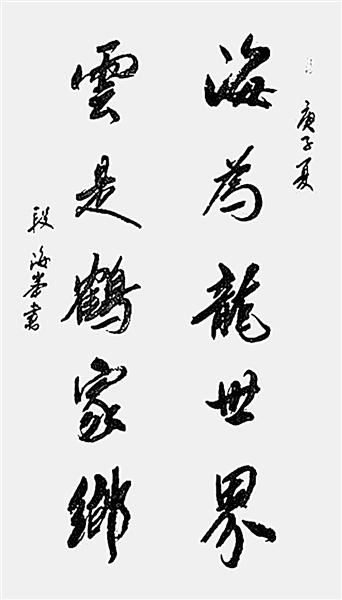 庚子夏
海為龍世界
雲是鶴家鄉
段海峯書